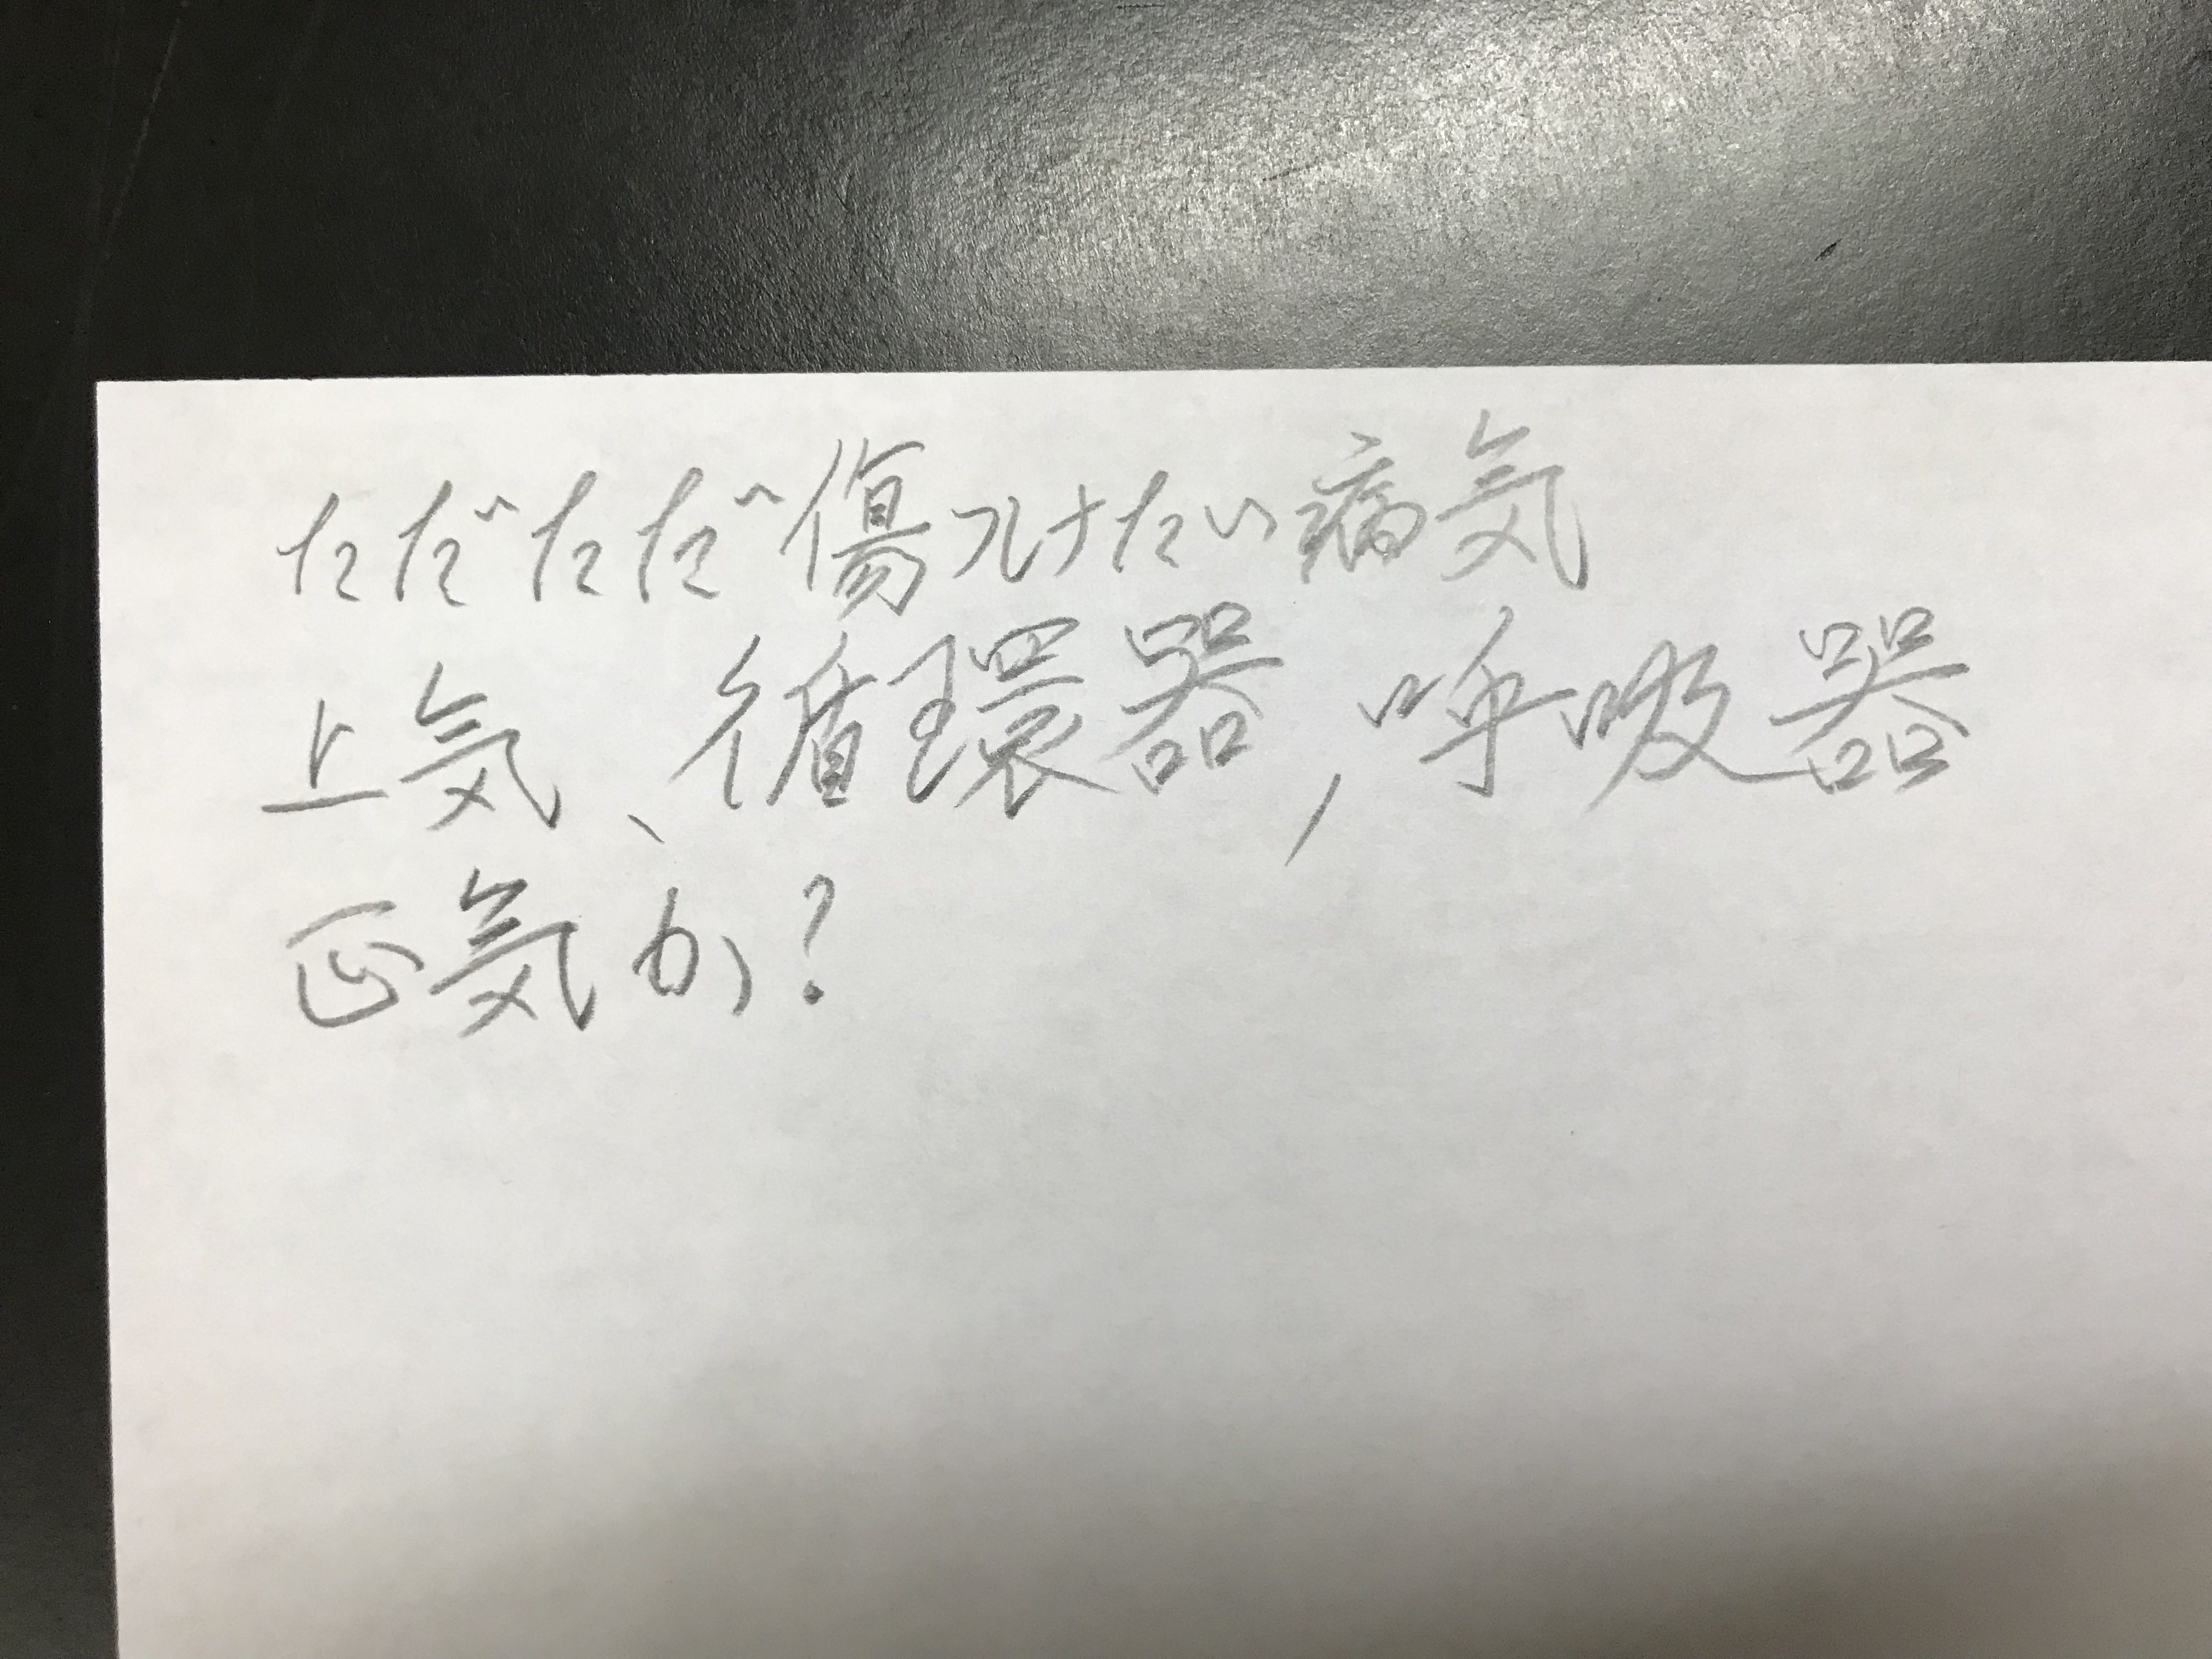 ただただ傷つけたい病気
上気、循環器,呼吸器
正気か?